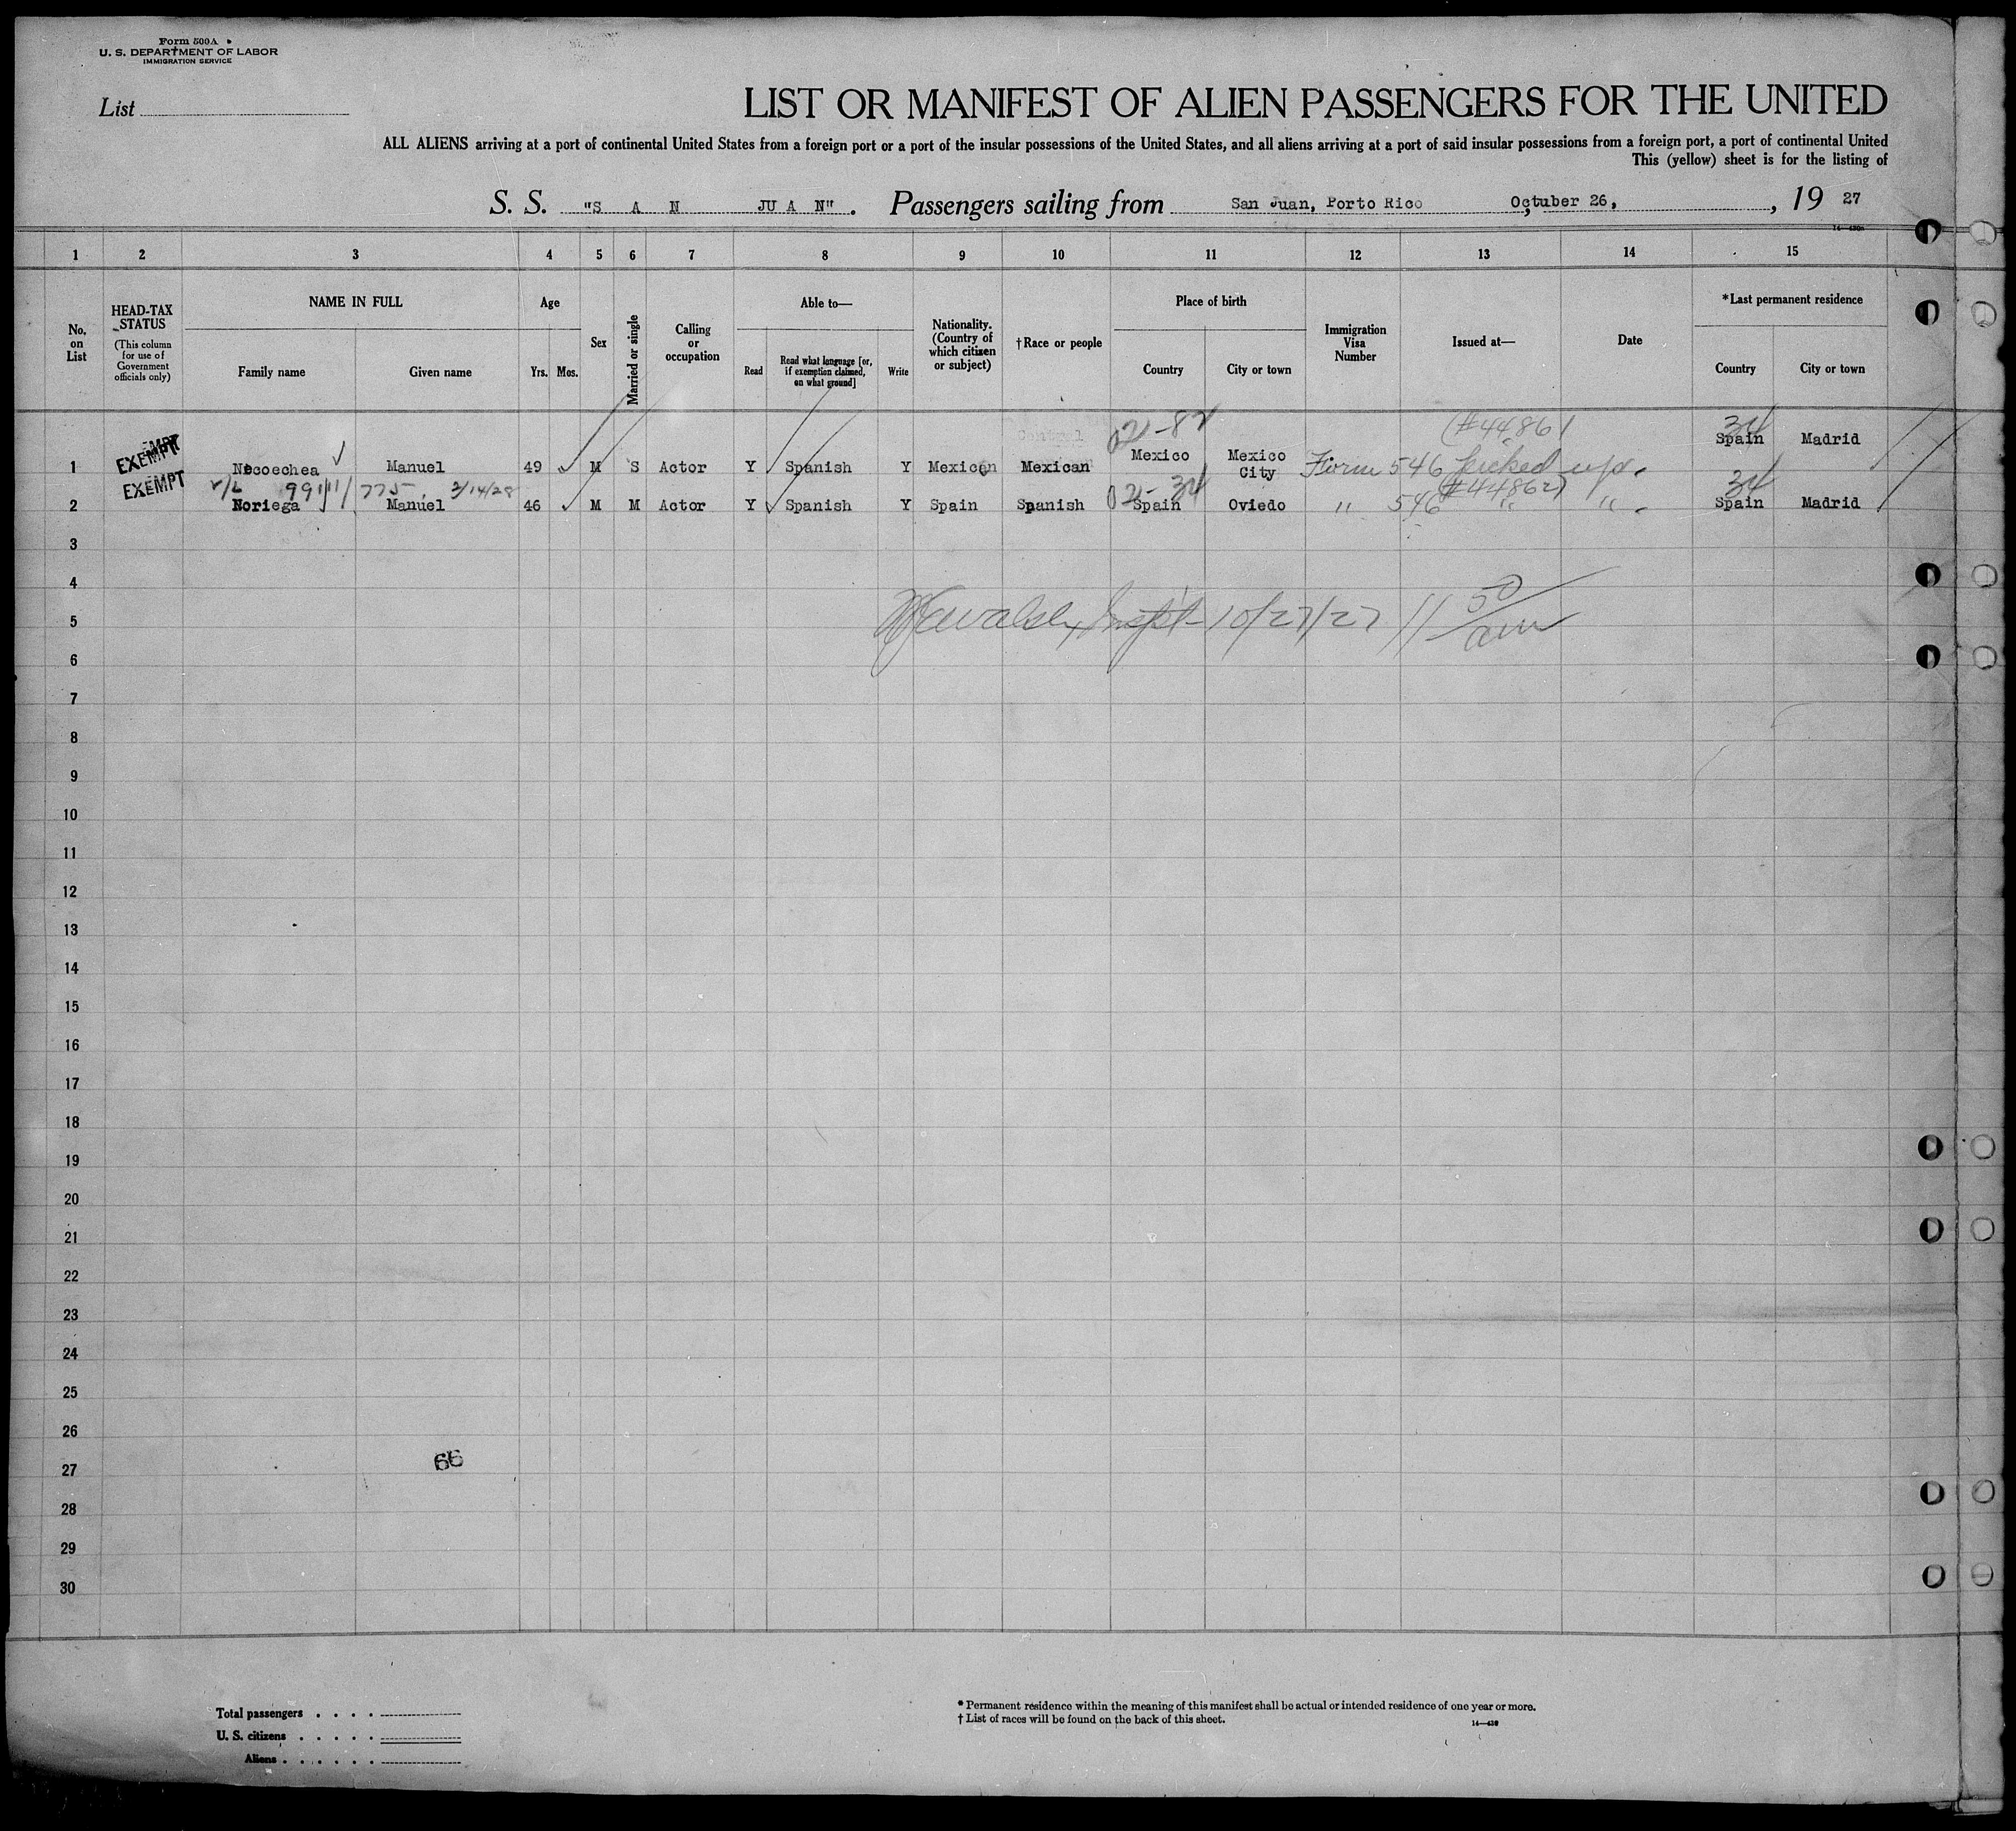 Form 500A
U. S. DEPARTMENT OF LABOR
IMMIGRATION SERVICE
List
LIST OR MANIFEST OF ALIEN PASSENGERS FOR THE UNITED
ALL ALIENS arriving at a port of continental United States from a foreign port or a port of the insular possessions of the United States, and all aliens arriving at a port of said insular possessions from a foreign port, a port of continental United
This (yellow) sheet is for the listing of
S. S. "S A N JU A N". Passengers sailing from San Juan, Porto Rico October 26, , 19 27
1 2 3 4 5 6 7 8 9 10 11 12 13 14 15
No. on List
HEAD-TAX STATUS (This column for use of Government officials only)
NAME IN FULL
Family name Given name
Age
Yrs. Mos.
Sex
Married or single
Calling or occupation
Able to—
Read
Read what language [or, if exemption claimed, on what ground]
Write
Nationality. (Country of which citizen or subject)
† Race or people
Place of birth
Country City or town
Immigration Visa Number
Issued at—
Date
*Last permanent residence
Country City or town
02-82 (#44861 34
1 EXEMPT Necoechea Manuel 49 M S Actor Y Spanish Y Mexican Mexican Mexico Mexico City Form 546 picked up. Spain Madrid
v/L 99 775 3/14/28 02-34 (#44862) 34
2 EXEMPT Noriega Manuel 46 M M Actor Y Spanish Y Spain Spanish Spain Oviedo " 546 " " Spain Madrid
3
4
5 Inspt- 10/27/27 11 50/am
6
7
8
9
10
11
12
13
14
15
16
17
18
19
20
21
22
23
24
25
26
66
27
28
29
30
Total passengers . . . .
U. S. citizens . . . . .
Aliens . . . . . .
* Permanent residence within the meaning of this manifest shall be actual or intended residence of one year or more.
† List of races will be found on the back of this sheet.